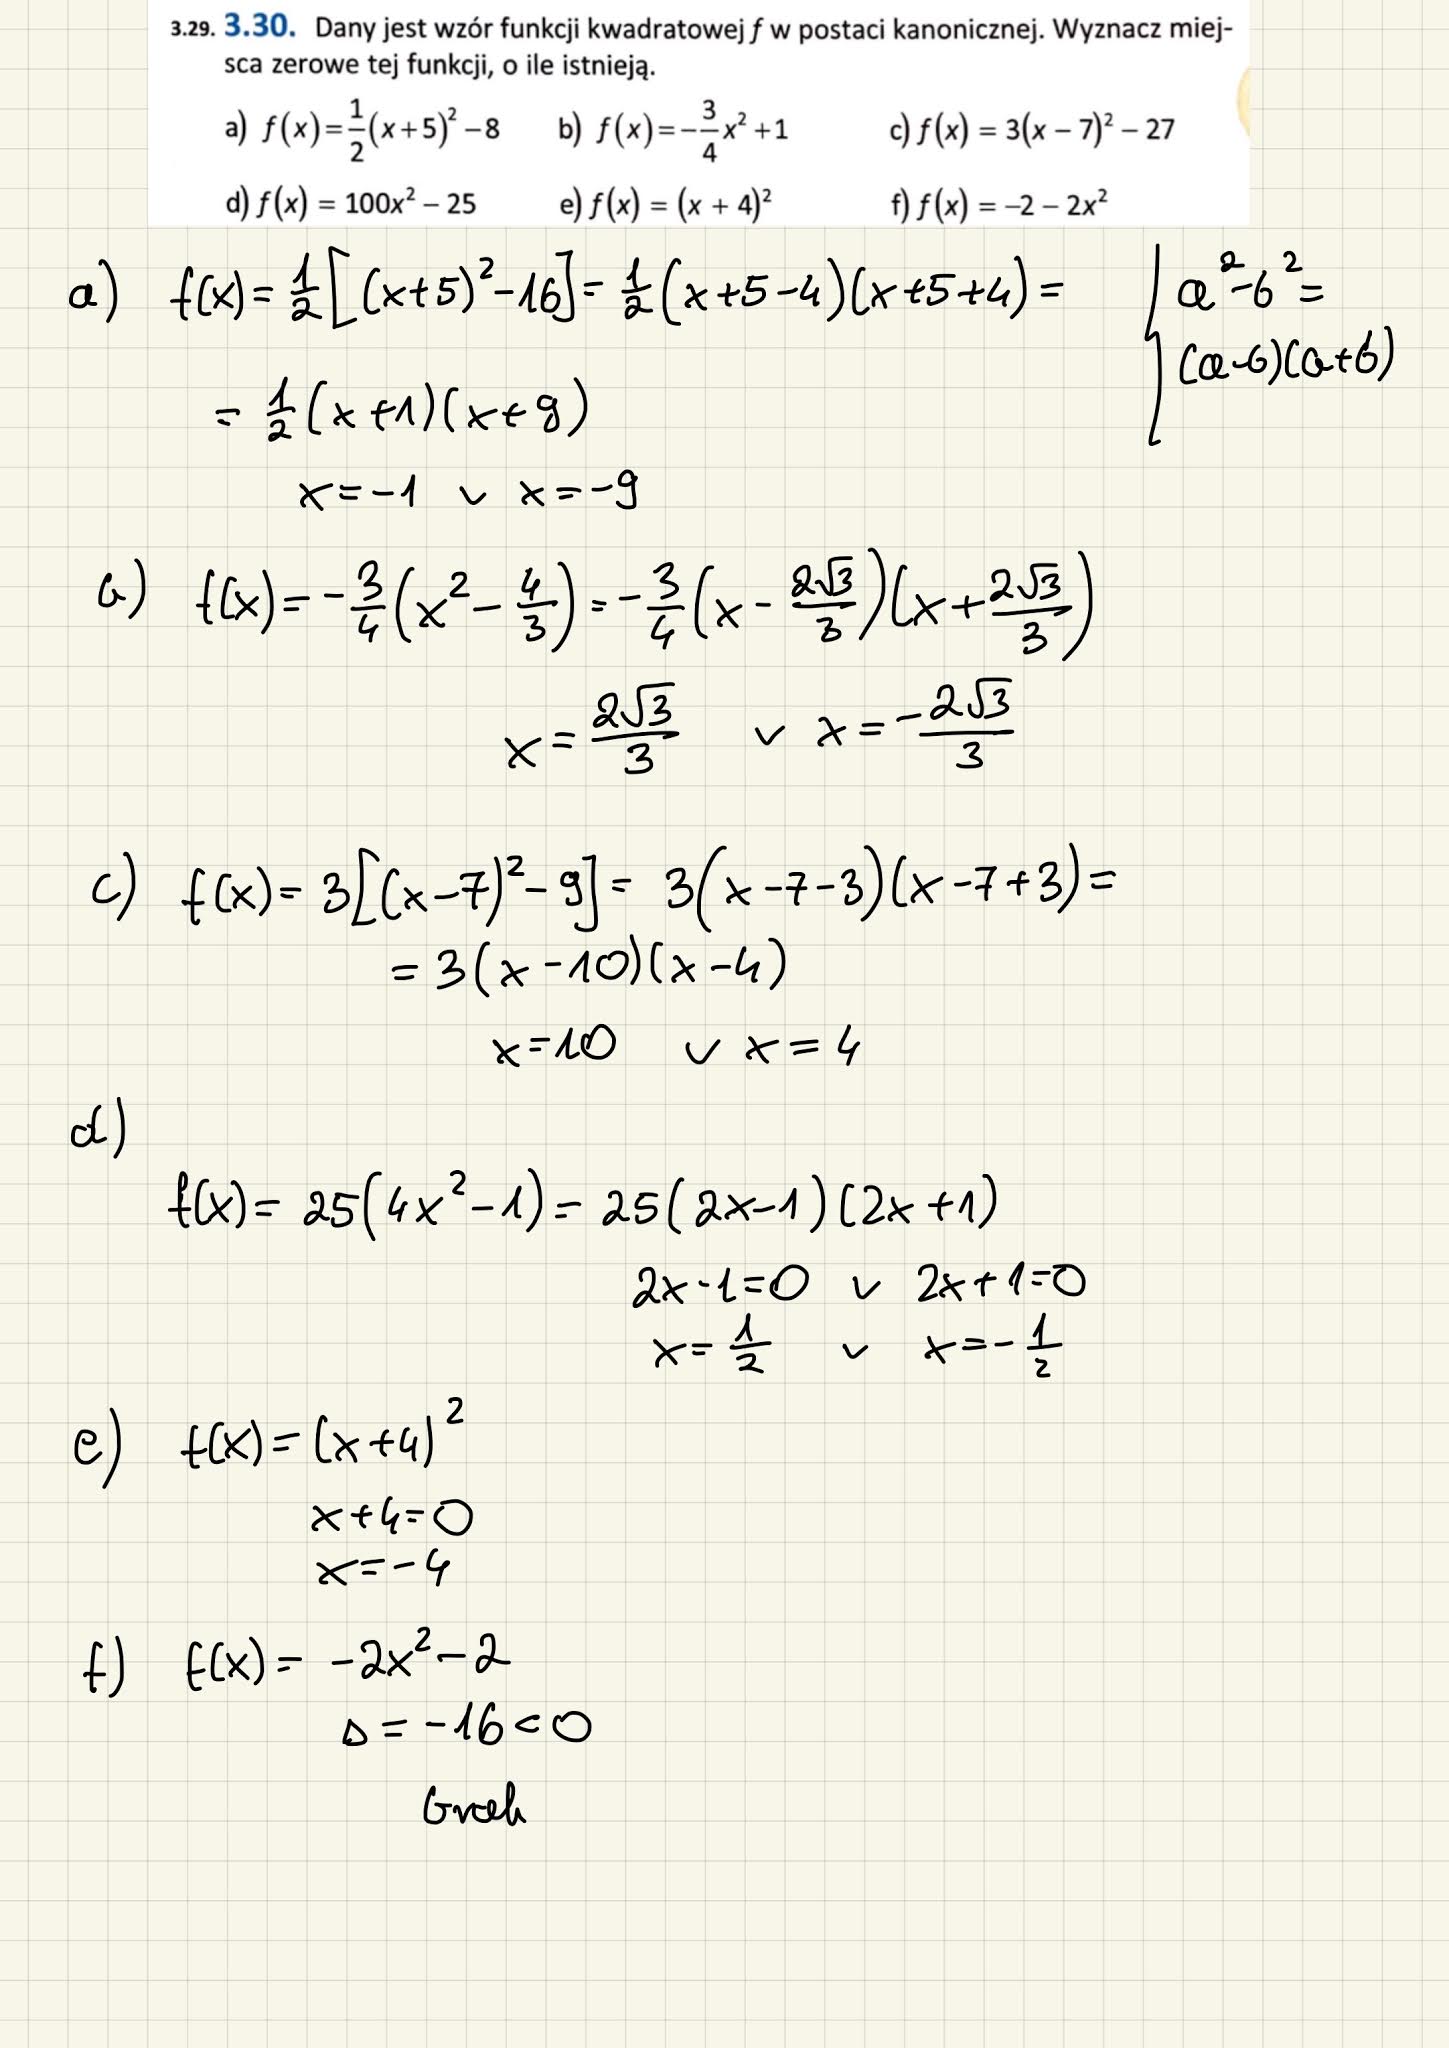 3.29. 3.30. Dany jest wzór funkcji kwadratowej f w postaci kanonicznej. Wyznacz miej-
sca zerowe tej funkcji, o ile istnieją.
a) f(x)=1/2(x+5)²−8 b) f(x)=−3/4x²+1 c) f(x) = 3(x − 7)² − 27
d) f(x) = 100x² − 25 e) f(x) = (x + 4)² f) f(x) = −2 − 2x²
a) f(x)= 1/2[(x+5)²-16]= 1/2(x+5-4)(x+5+4)=
a²-b²=
(a-b)(a+b)
= 1/2(x+1)(x+9)
x=-1 ∨ x=-9
b) f(x)=-3/4(x²-4/3)=-3/4(x-2√3/3)(x+2√3/3)
x=2√3/3 ∨ x=-2√3/3
c) f(x)= 3[(x-7)²-9]= 3(x-7-3)(x-7+3)=
=3(x-10)(x-4)
x=10 ∨ x=4
d)
f(x)= 25(4x²-1)= 25(2x-1)(2x+1)
2x-1=0 ∨ 2x+1=0
x=1/2 ∨ x=-1/2
e) f(x)=(x+4)²
x+4=0
x=-4
f) f(x)= -2x²-2
Δ=-16<0
brak